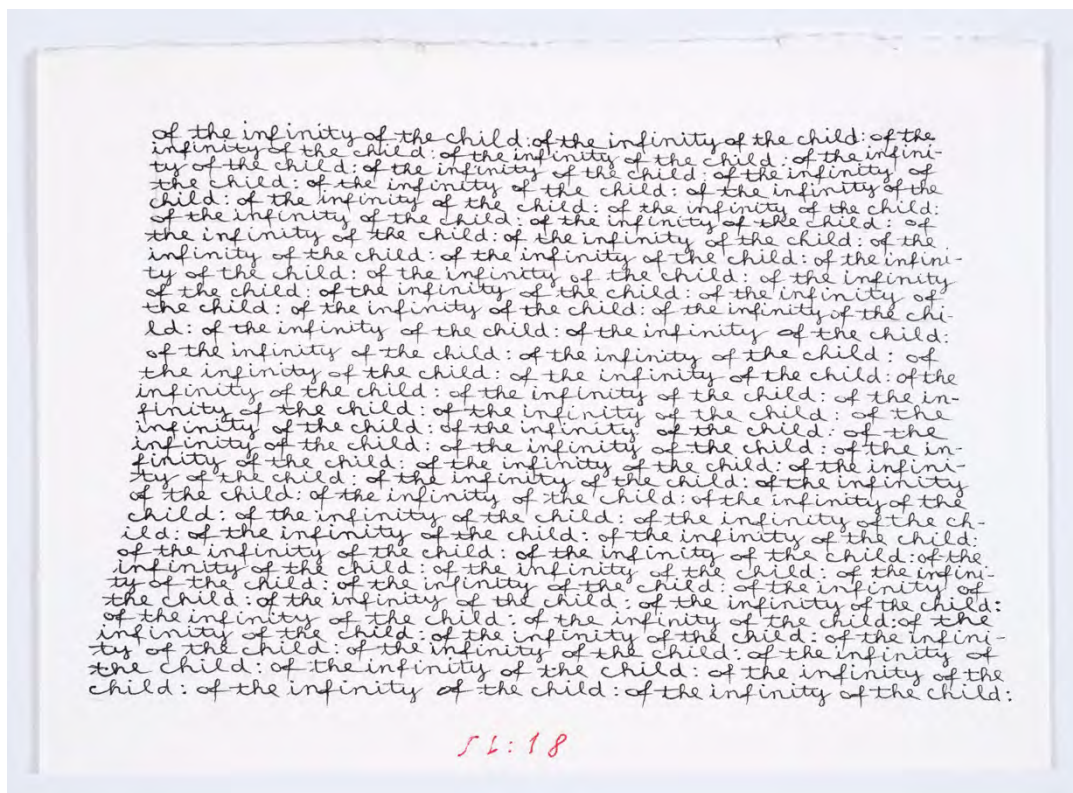 of the infinity of the child: of the infinity of the child: of the
infinity of the child: of the infinity of the child: of the infini-
ty of the child: of the infinity of the child: of the infinity of
the child: of the infinity of the child: of the infinity of the
child: of the infinity of the child: of the infinity of the child:
of the infinity of the child: of the infinity of the child: of
the infinity of the child: of the infinity of the child: of the
infinity of the child: of the infinity of the child: of the infini-
ty of the child: of the infinity of the child: of the infinity
of the child: of the infinity of the child: of the infinity of
the child: of the infinity of the child: of the infinity of the chi-
ld: of the infinity of the child: of the infinity of the child:
of the infinity of the child: of the infinity of the child: of
the infinity of the child: of the infinity of the child: of the
infinity of the child: of the infinity of the child: of the in-
finity of the child: of the infinity of the child: of the
infinity of the child: of the infinity of the child: of the
infinity of the child: of the infinity of the child: of the in-
finity of the child: of the infinity of the child: of the infini-
ty of the child: of the infinity of the child: of the infinity
of the child: of the infinity of the child: of the infinity of the
child: of the infinity of the child: of the infinity of the ch-
ild: of the infinity of the child: of the infinity of the child:
of the infinity of the child: of the infinity of the child: of the
infinity of the child: of the infinity of the child: of the infini-
ty of the child: of the infinity of the child: of the infinity of
the child: of the infinity of the child: of the infinity of the child:
of the infinity of the child: of the infinity of the child: of the
infinity of the child: of the infinity of the child: of the infini-
ty of the child: of the infinity of the child: of the infinity of
the child: of the infinity of the child: of the infinity of the
child: of the infinity of the child: of the infinity of the child: